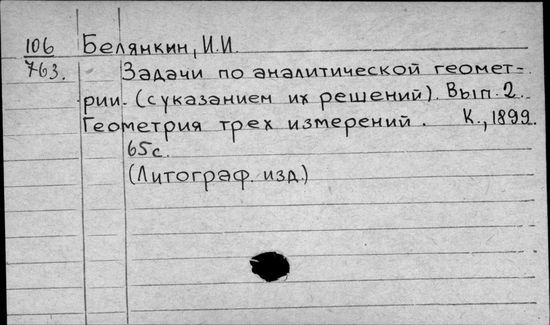 106 Белянкин, И.И.
763. Задачи по аналитической геомет-
рии. (с указанием их решений). Вып. 2.
Геометрия трех измерений. К., 1899.
65с.
(Литограф. изд.)